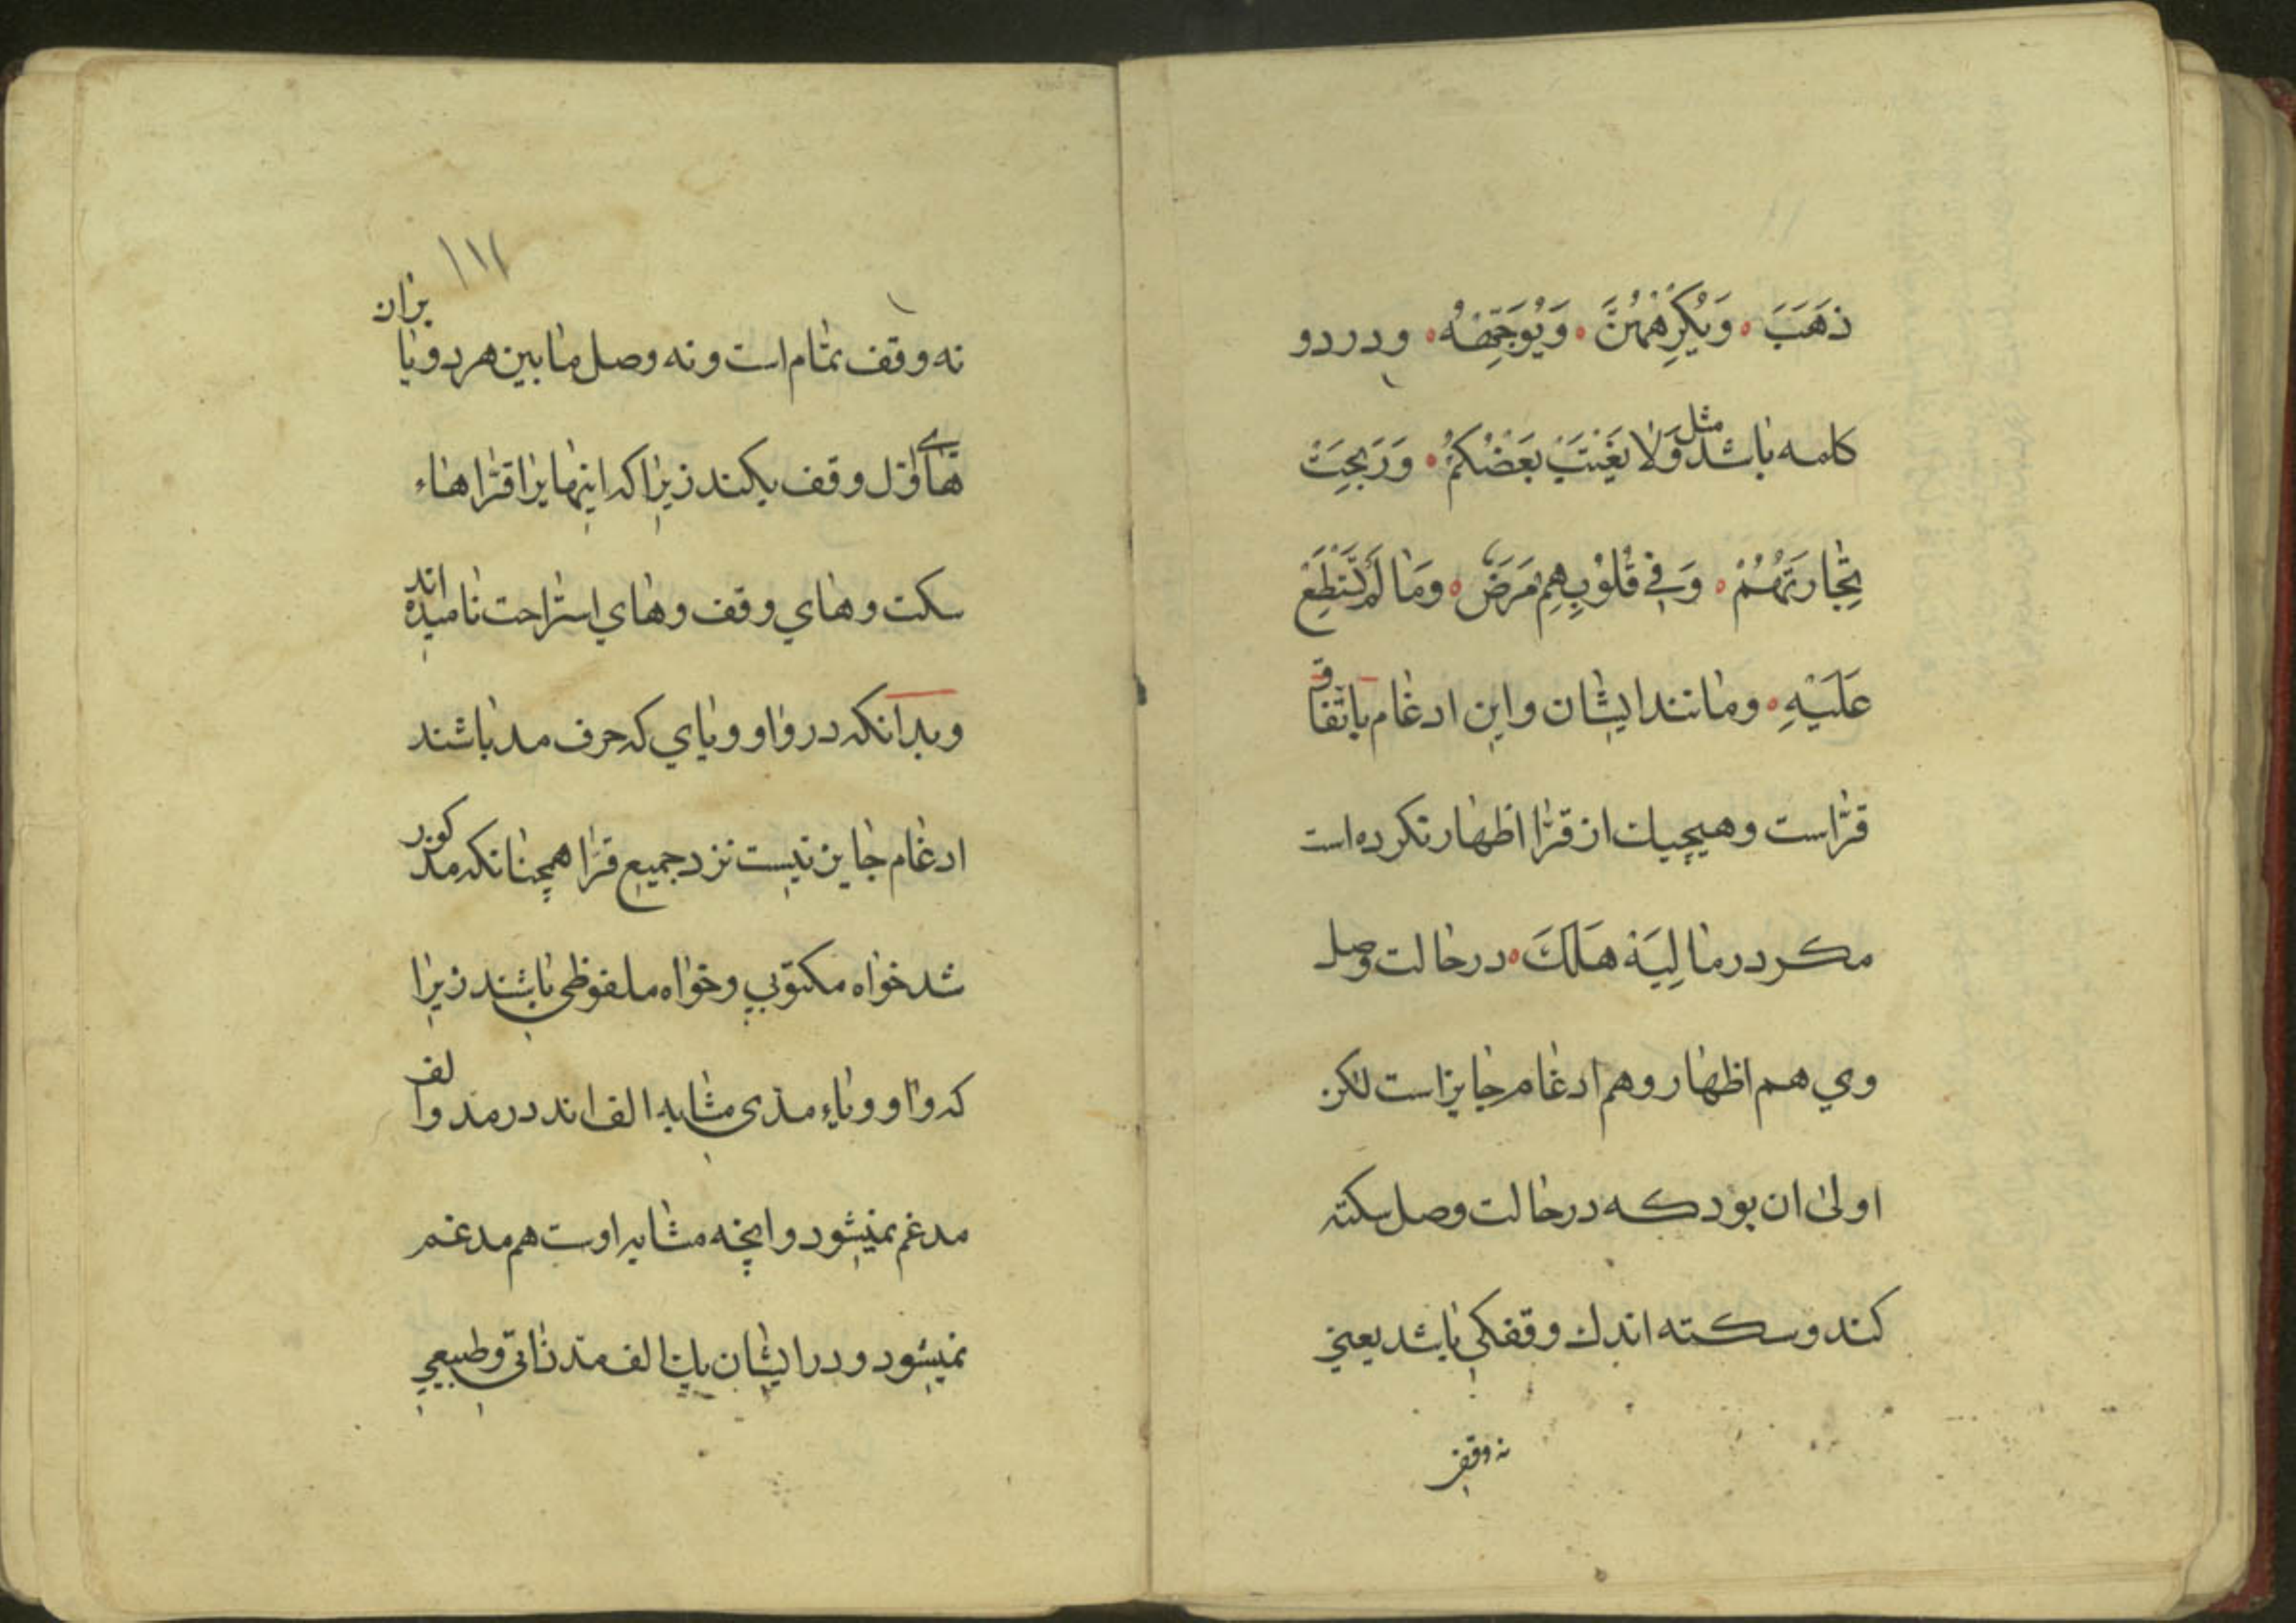 ذَهَبَ ۰ وَيُكْرِهْهُنَّ ۰ وَيُوَجِّهْهُ ۰ ودر دو
كلمه باشد مثل وَلَا يَغْتَبْ بَعْضُكُمْ ۰ وَرَبِحَتْ
تِجَارَتُهُمْ ۰ وَفِي قُلُوْبِهِمْ مَرَضٌ ۰ وَمَا لَمْ تَسْتَطِعْ
عَلَيْهِ ۰ ومانند ايشان واين ادغام باتّفاق
قرّاست وهيچيك از قرّا اظهار نكرده است
مكر در مَا لِيَهْ هَلَكَ ۰ در حالت وصل
وي هم اظهار وهم ادغام جايز است لكن
اولى ان بود كه در حالت وصل سكته
كند وسكته اندك وقفكى باشد يعنى
نه وقف
١١٢
نه وقف تمام است ونه وصل ما بين هر دو يا بران
هاى اوّل وقف بكند زيرا كه اينها يرا قرّا هاء
سكت وهاي وقف وهاي استراحت ناميده اند
وبدانكه در واو وياي كه حرف مد باشند
ادغام جايز نيست نزد جميع قرّا همچنانكه مذكور
شد خواه مكتوبي وخواه ملفوظى باشند زيرا
كه واو وياء مدّى مشابه الف اند در مد والف
مدغم نميشود وانچه مشابه اوست هم مدغم
نميشود ودر ايشان با الف مدّ ذاتى وطبيعي